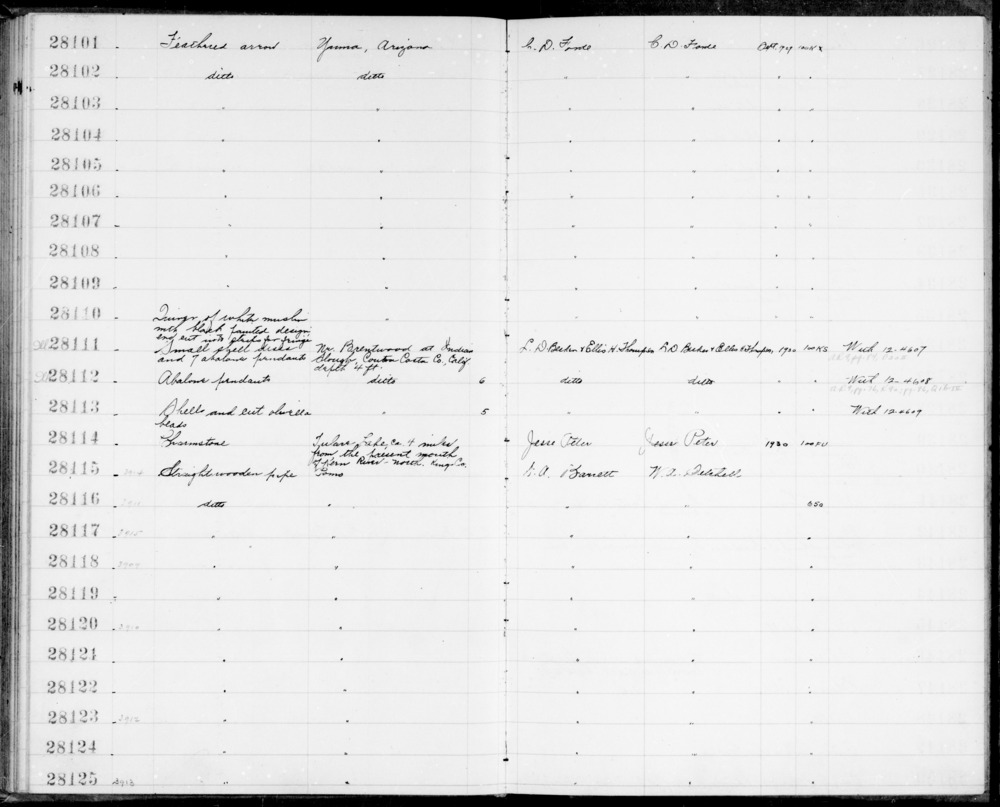 28101 Feathered arrow Yuma, Arizona C. D. Forde C D Forde
28102 ditto ditto " " " "
28103 " " " " " "
28104 " " " " " "
28105 " " " " " "
28106 " " " " " "
28107 " " " " " "
28108 " " " " " "
28109 " " " " " "
28110 of white muslin " " " " "
with black painted design
end cut into strips for fringe
28111 Small shell discs Nr. Brentwood at Indian L. D Beeken & Ellis H. Thompson 1930 With 12-4607
and 7 abalone pendants Slough, Contra Costa Co., Calif
depth 4 ft.
28112 Abalone pendants ditto 6 ditto ditto " " With 12-4608
28113 Shells and cut olivella " 5 " " " " With 12-4609
beads
28114 Charmstone Tulare Lake, Ca. 4 miles Jesse Peter Jesse Peter 1930
from the present mouth
of Kern River - North, Kings Co.
28115 Straight wooden pipe Pomo S. A. Barrett
28116 ditto " " " 350
28117 " " " " "
28118 " " " " "
28119 " " " " "
28120 " " " " "
28121 " " " " "
28122 " " " " "
28123 2912 " " " " "
28124 " " " " "
28125 2913 " " " " "